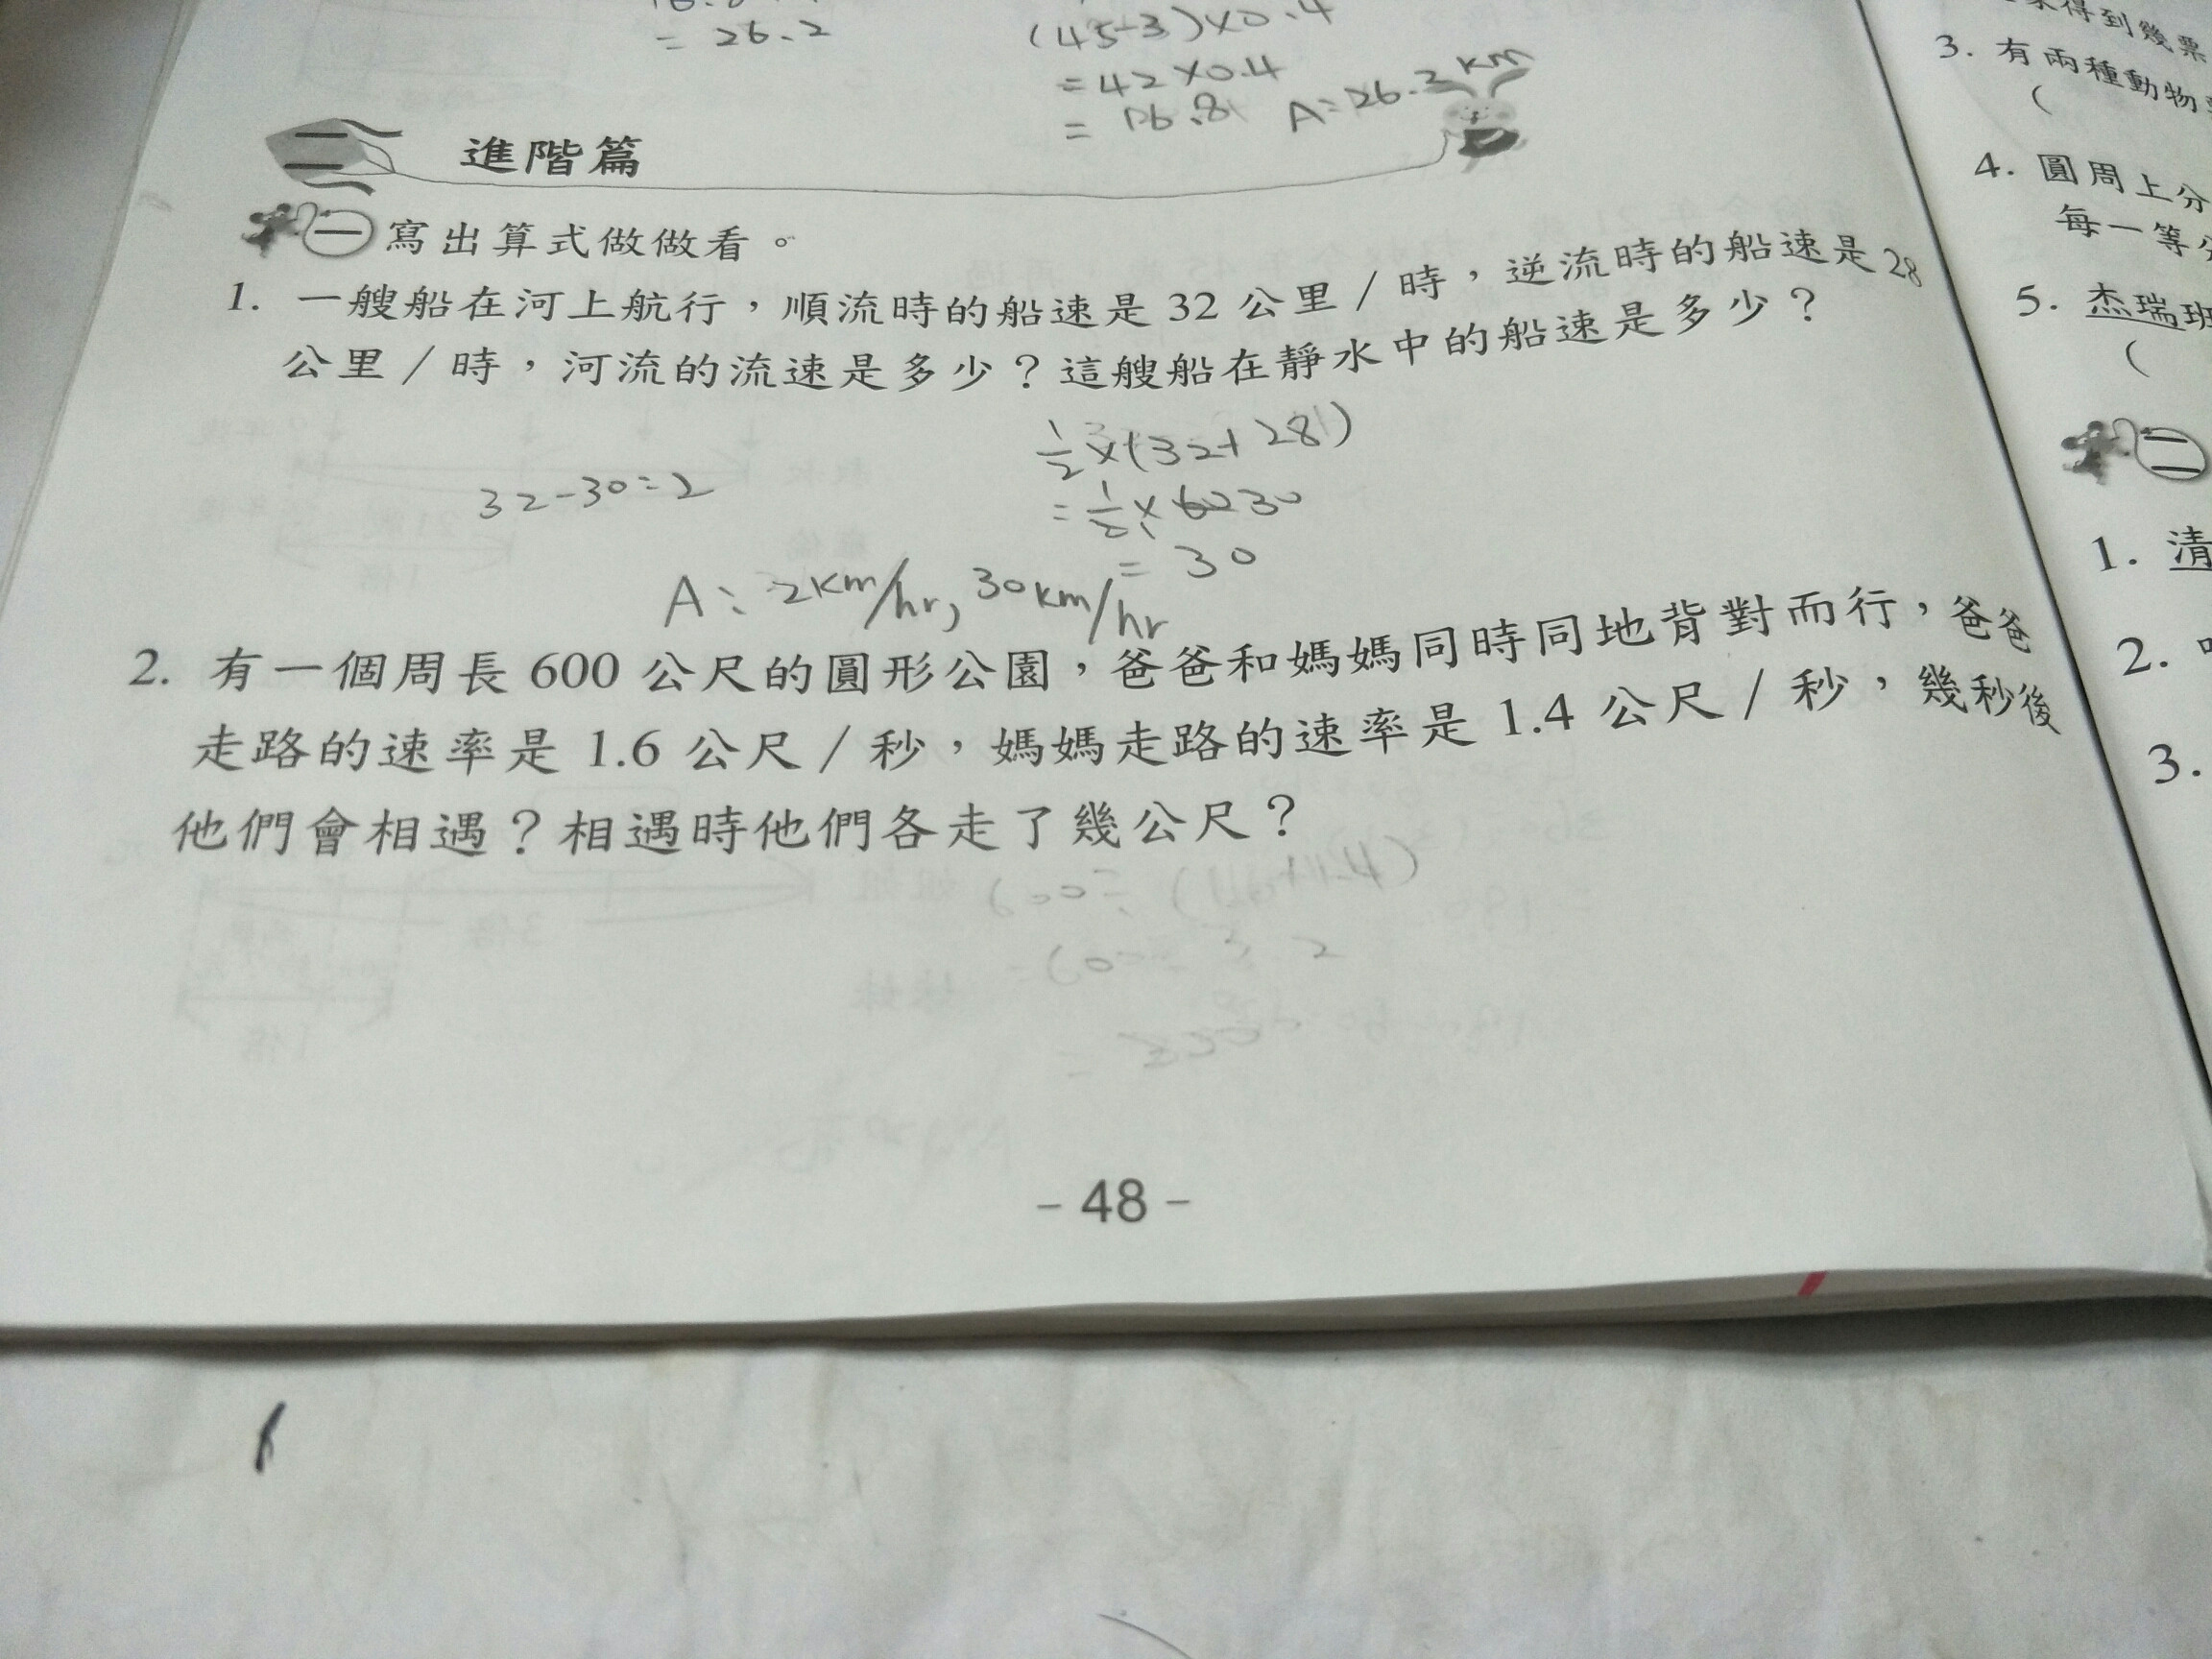 = 26.2
(45-3)×0.4
=42×0.4
= 16.8 A=26.3km
二 進階篇
一 寫出算式做做看。
1. 一艘船在河上航行，順流時的船速是 32 公里／時，逆流時的船速是 28
公里／時，河流的流速是多少？這艘船在靜水中的船速是多少？
1/2×(32+28)
32-30=2
=1/2×60 30
= 30
A: 2km/hr, 30km/hr
2. 有一個周長 600 公尺的圓形公園，爸爸和媽媽同時同地背對而行，爸爸
走路的速率是 1.6 公尺／秒，媽媽走路的速率是 1.4 公尺／秒，幾秒後
他們會相遇？相遇時他們各走了幾公尺？
- 48 -
得到幾票
3. 有兩種動物
(
4. 圓周上分
每一等
5. 杰瑞班
(
二
1. 清
2.
3.